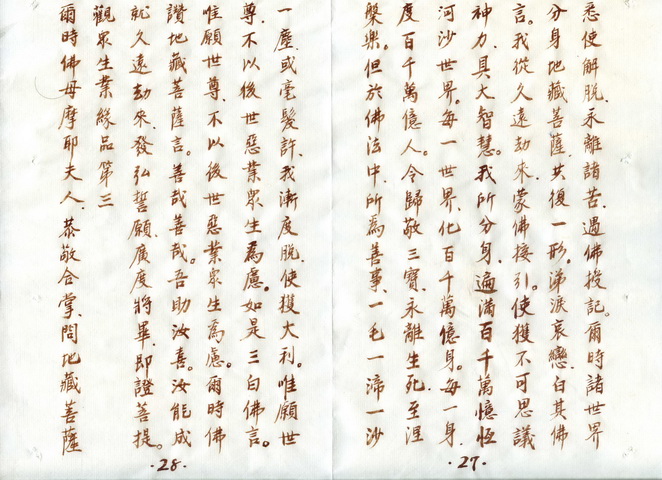 悉使解脫、永離諸苦、遇佛授記。爾時諸世界
分身地藏菩薩、共復一形、涕淚哀戀、白其佛
言。我從久遠劫來、蒙佛接引、使獲不可思議
神力、具大智慧。我所分身、遍滿百千萬憶恆
河沙世界。每一世界、化百千萬億身。每一身、
度百千萬億人。令歸敬三寶、永離生死、至涅
槃樂。但於佛法中、所為善事、一毛一渧一沙
·27·
一塵、或毫髮許、我漸度脫、使獲大利。唯願世
尊、不以後世惡業眾生為慮。如是三白佛言。
唯願世尊、不以後世惡業眾生為慮。爾時佛
讚地藏菩薩言。善哉善哉。吾助汝喜。汝能成
就久遠劫來、發弘誓願、廣度將畢、即證菩提。
觀眾生業緣品第三
爾時佛母摩耶夫人、恭敬合掌、問地藏菩薩
·28·